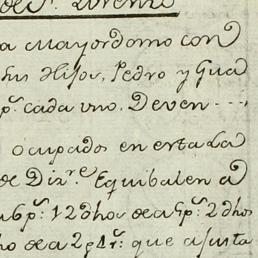 de Sn. Lorenzo
a Mayordomo con
sus Hijos, Pedro y Gua
ps. cada uno. Deven
ocupados en esta La
de Dizre. Equibalen â
6ps. 12 dhos de a 5ps. 2 dhos
ho de a 2p 4rs. que ajusta